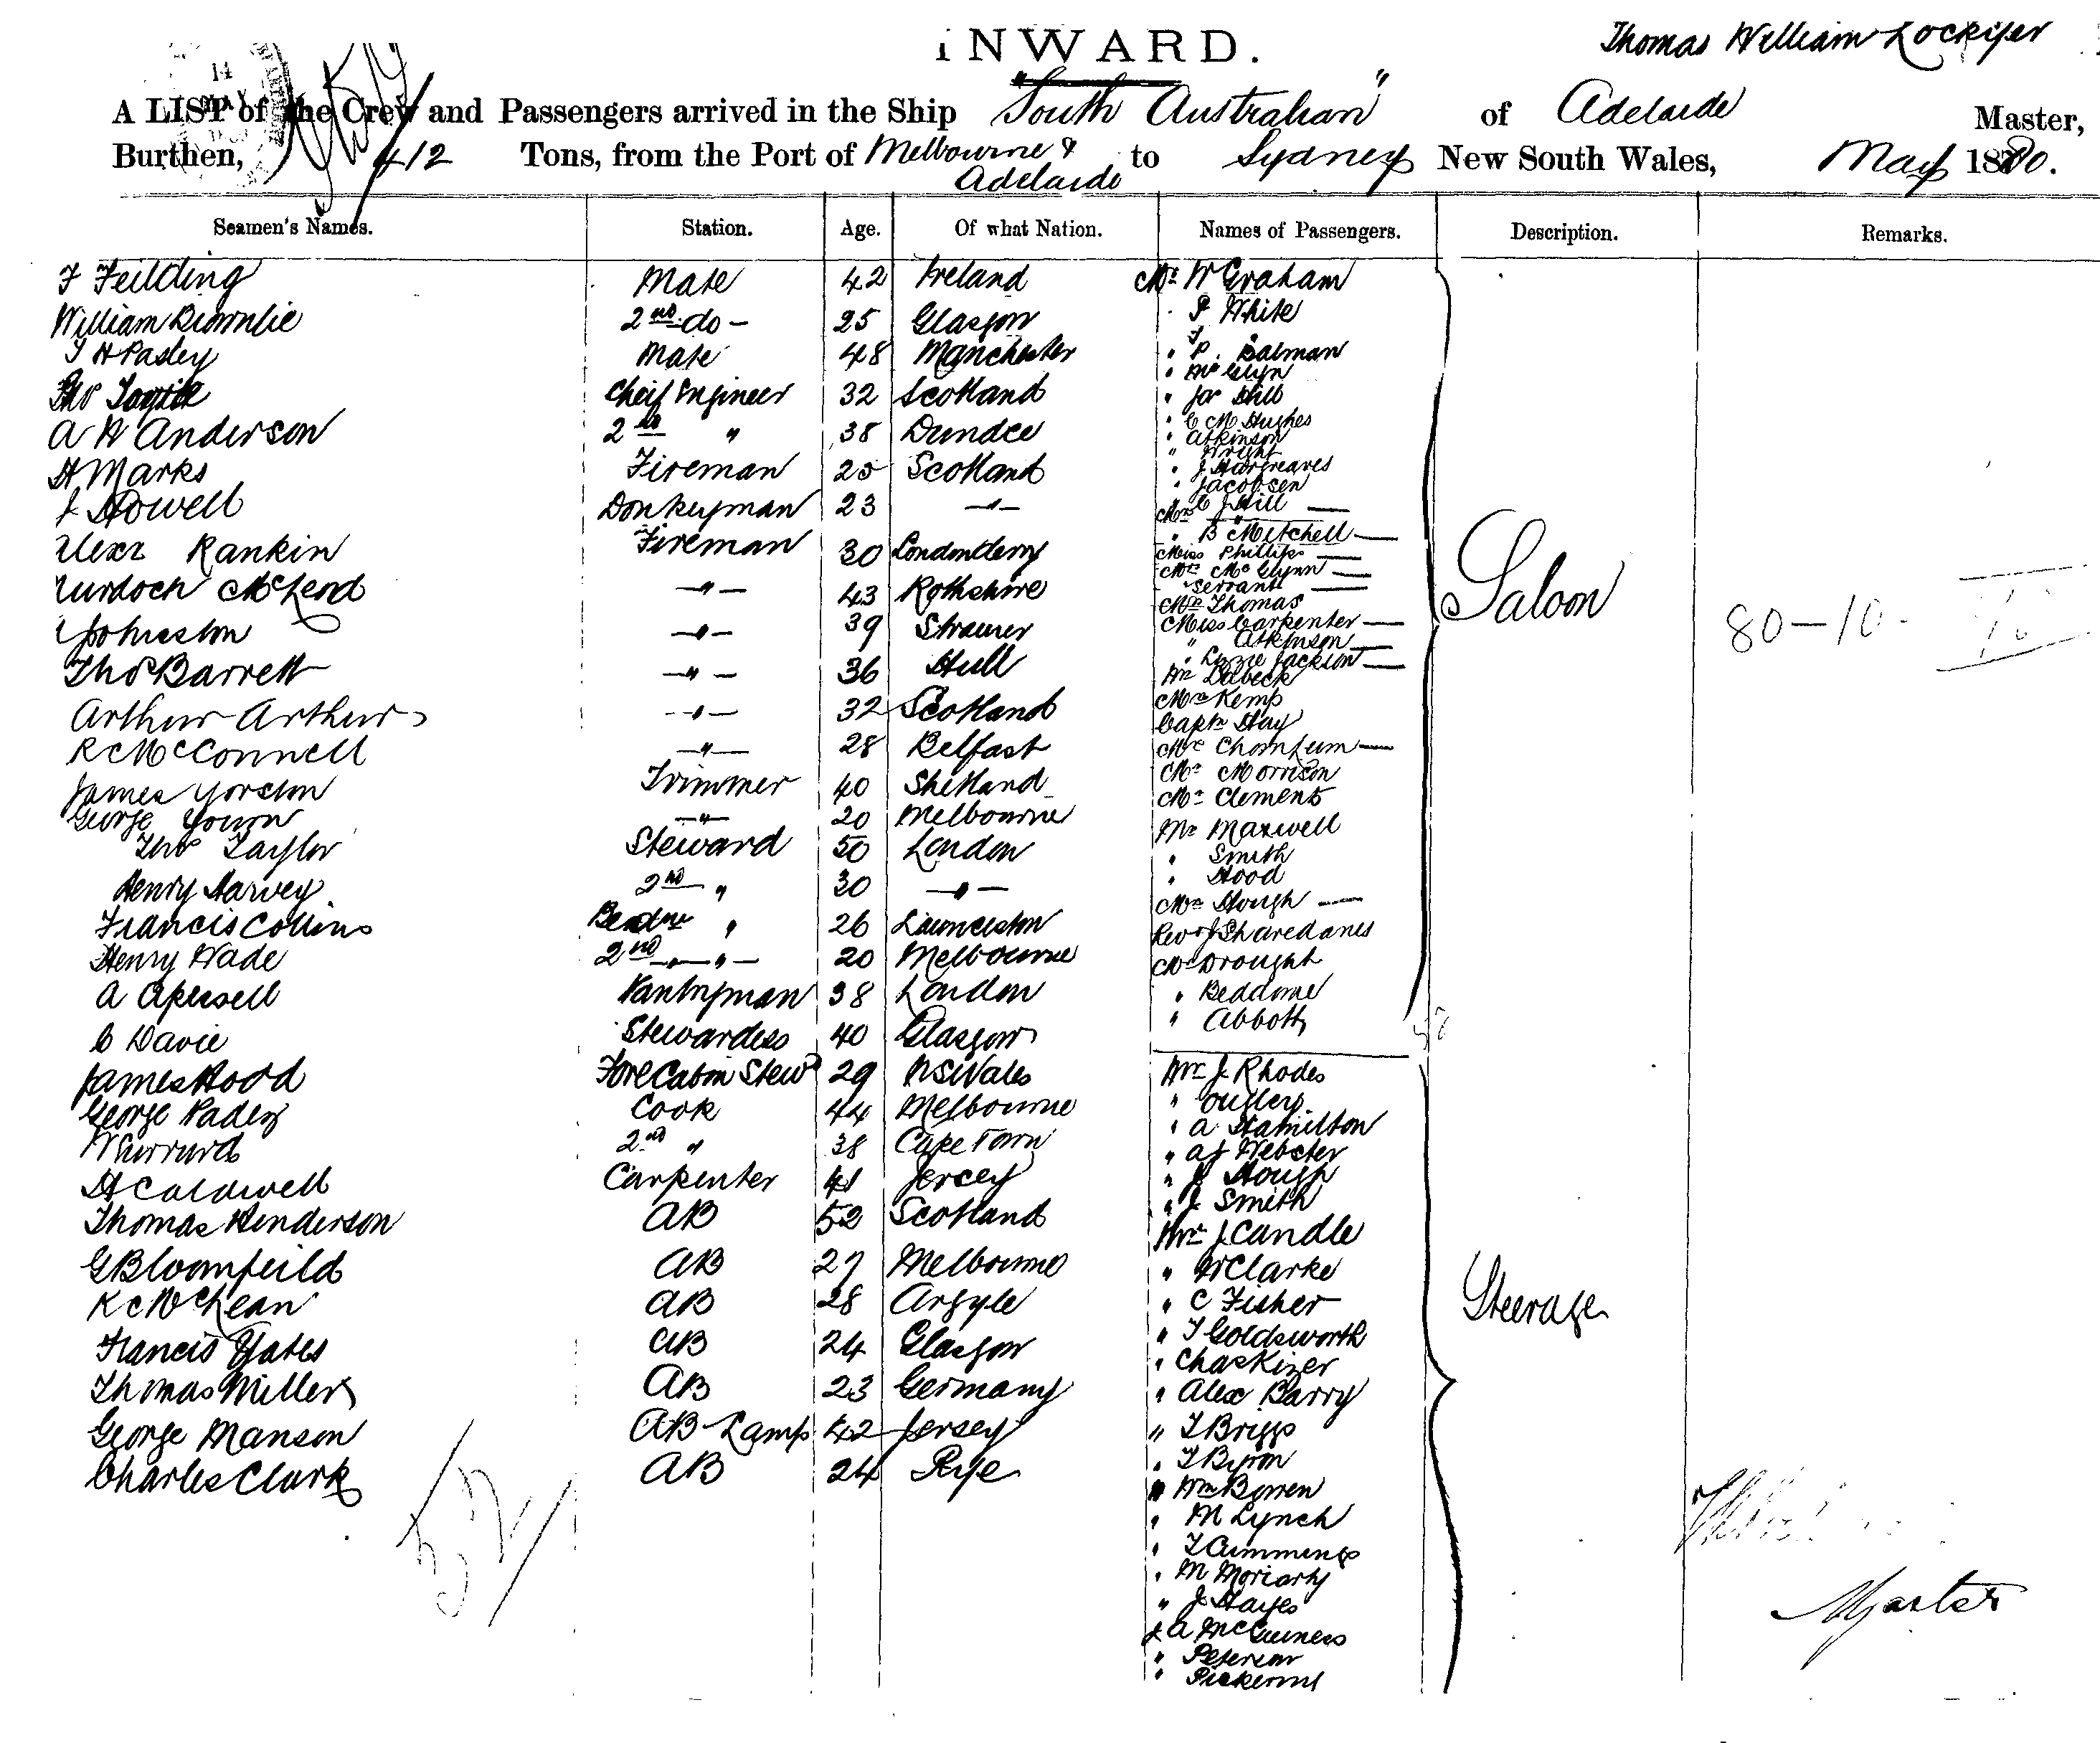 INWARD.
Thomas William Lockyer
A LIST of the Crew and Passengers arrived in the Ship "South Australian" of Adelaide Master,
Burthen, 412 Tons, from the Port of Melbourne & Adelaide to Sydney New South Wales, May 1880.
Seamen's Names. Station. Age. Of what Nation. Names of Passengers. Description. Remarks.
F Feilding Mate 42 Ireland Mr W Graham
William Brownlie 2nd do - 25 Glasgow " P White
T H Pasley Mate 48 Manchester " P. Balman
" McGlyn
Cheif Engineer 32 Scotland " Jas Hill
A W Anderson 2nd " 38 Dundee " C M Hughes
" Atkinson
" Wright
H Marks Fireman 25 Scotland " J Hargreaves
" Jacobsen
J Howell Donkeyman 23 -"- " C J Hill
Mrs "
" B Mitchell
Alexr Rankin Fireman 30 Londonderry Miss Phillips
Mrs McGlynn
" Servant
Murdoch McLeod -"- 43 Rothshire Mrs Thomas
Johnston -"- 39 Stranrer Miss Carpenter
" Atkinson
Thos Barrett -"- 36 Hull " Lizzie Jackson
Mr Dabeck
Arthur Arthurs -"- 32 Scotland Mr Kemp
Captn Hay
R McConnell -"- 28 Belfast Mrs
Mr Morrison
James Yorston Trimmer 40 Shetland Mr Clements
George Youn -"- 20 Melbourne Mr Maxwell
Thos Taylor Steward 50 London " Smith
Henry Harvey 2nd " 30 -"- " Hood
Mrs Hough
Francis Collins " 26 Launceston Revd J
Henry Wade 2nd -"- 20 Melbourne Mr Drought
A Apersell Pantryman 38 London " Beddome
" Abbott
Saloon
80-10-
C Davie Stewardess 40 Glasgow
James Hood Fore Cabin Stewd 29 NSWales Mr J Rhodes
George Paders Cook 44 Melbourne "
" A Hamilton
2nd " 38 Cape Town " A J Webster
H Caldwell Carpenter 41 Jercey " J Hough
" J Smith
Thomas Henderson AB 52 Scotland Mr J Candle
G Bloomfeild AB 27 Melbourne " W Clarke
R McLean AB 28 Argyle " C Fisher
Francis Yates AB 24 Glasgow " T Goldsworth
" Chas Kizer
Thomas Miller AB 23 Germany " Alex Barry
George Manson AB Lamps 42 Jersey " T Briggs
Charles Clark AB 24 Rye " T Byron
" Wm Bowen
" M Lynch
" T Cummings
" M Moriarty
" J Hayes
" A McGuiness
" Peterson
"
Steerage
52
Master